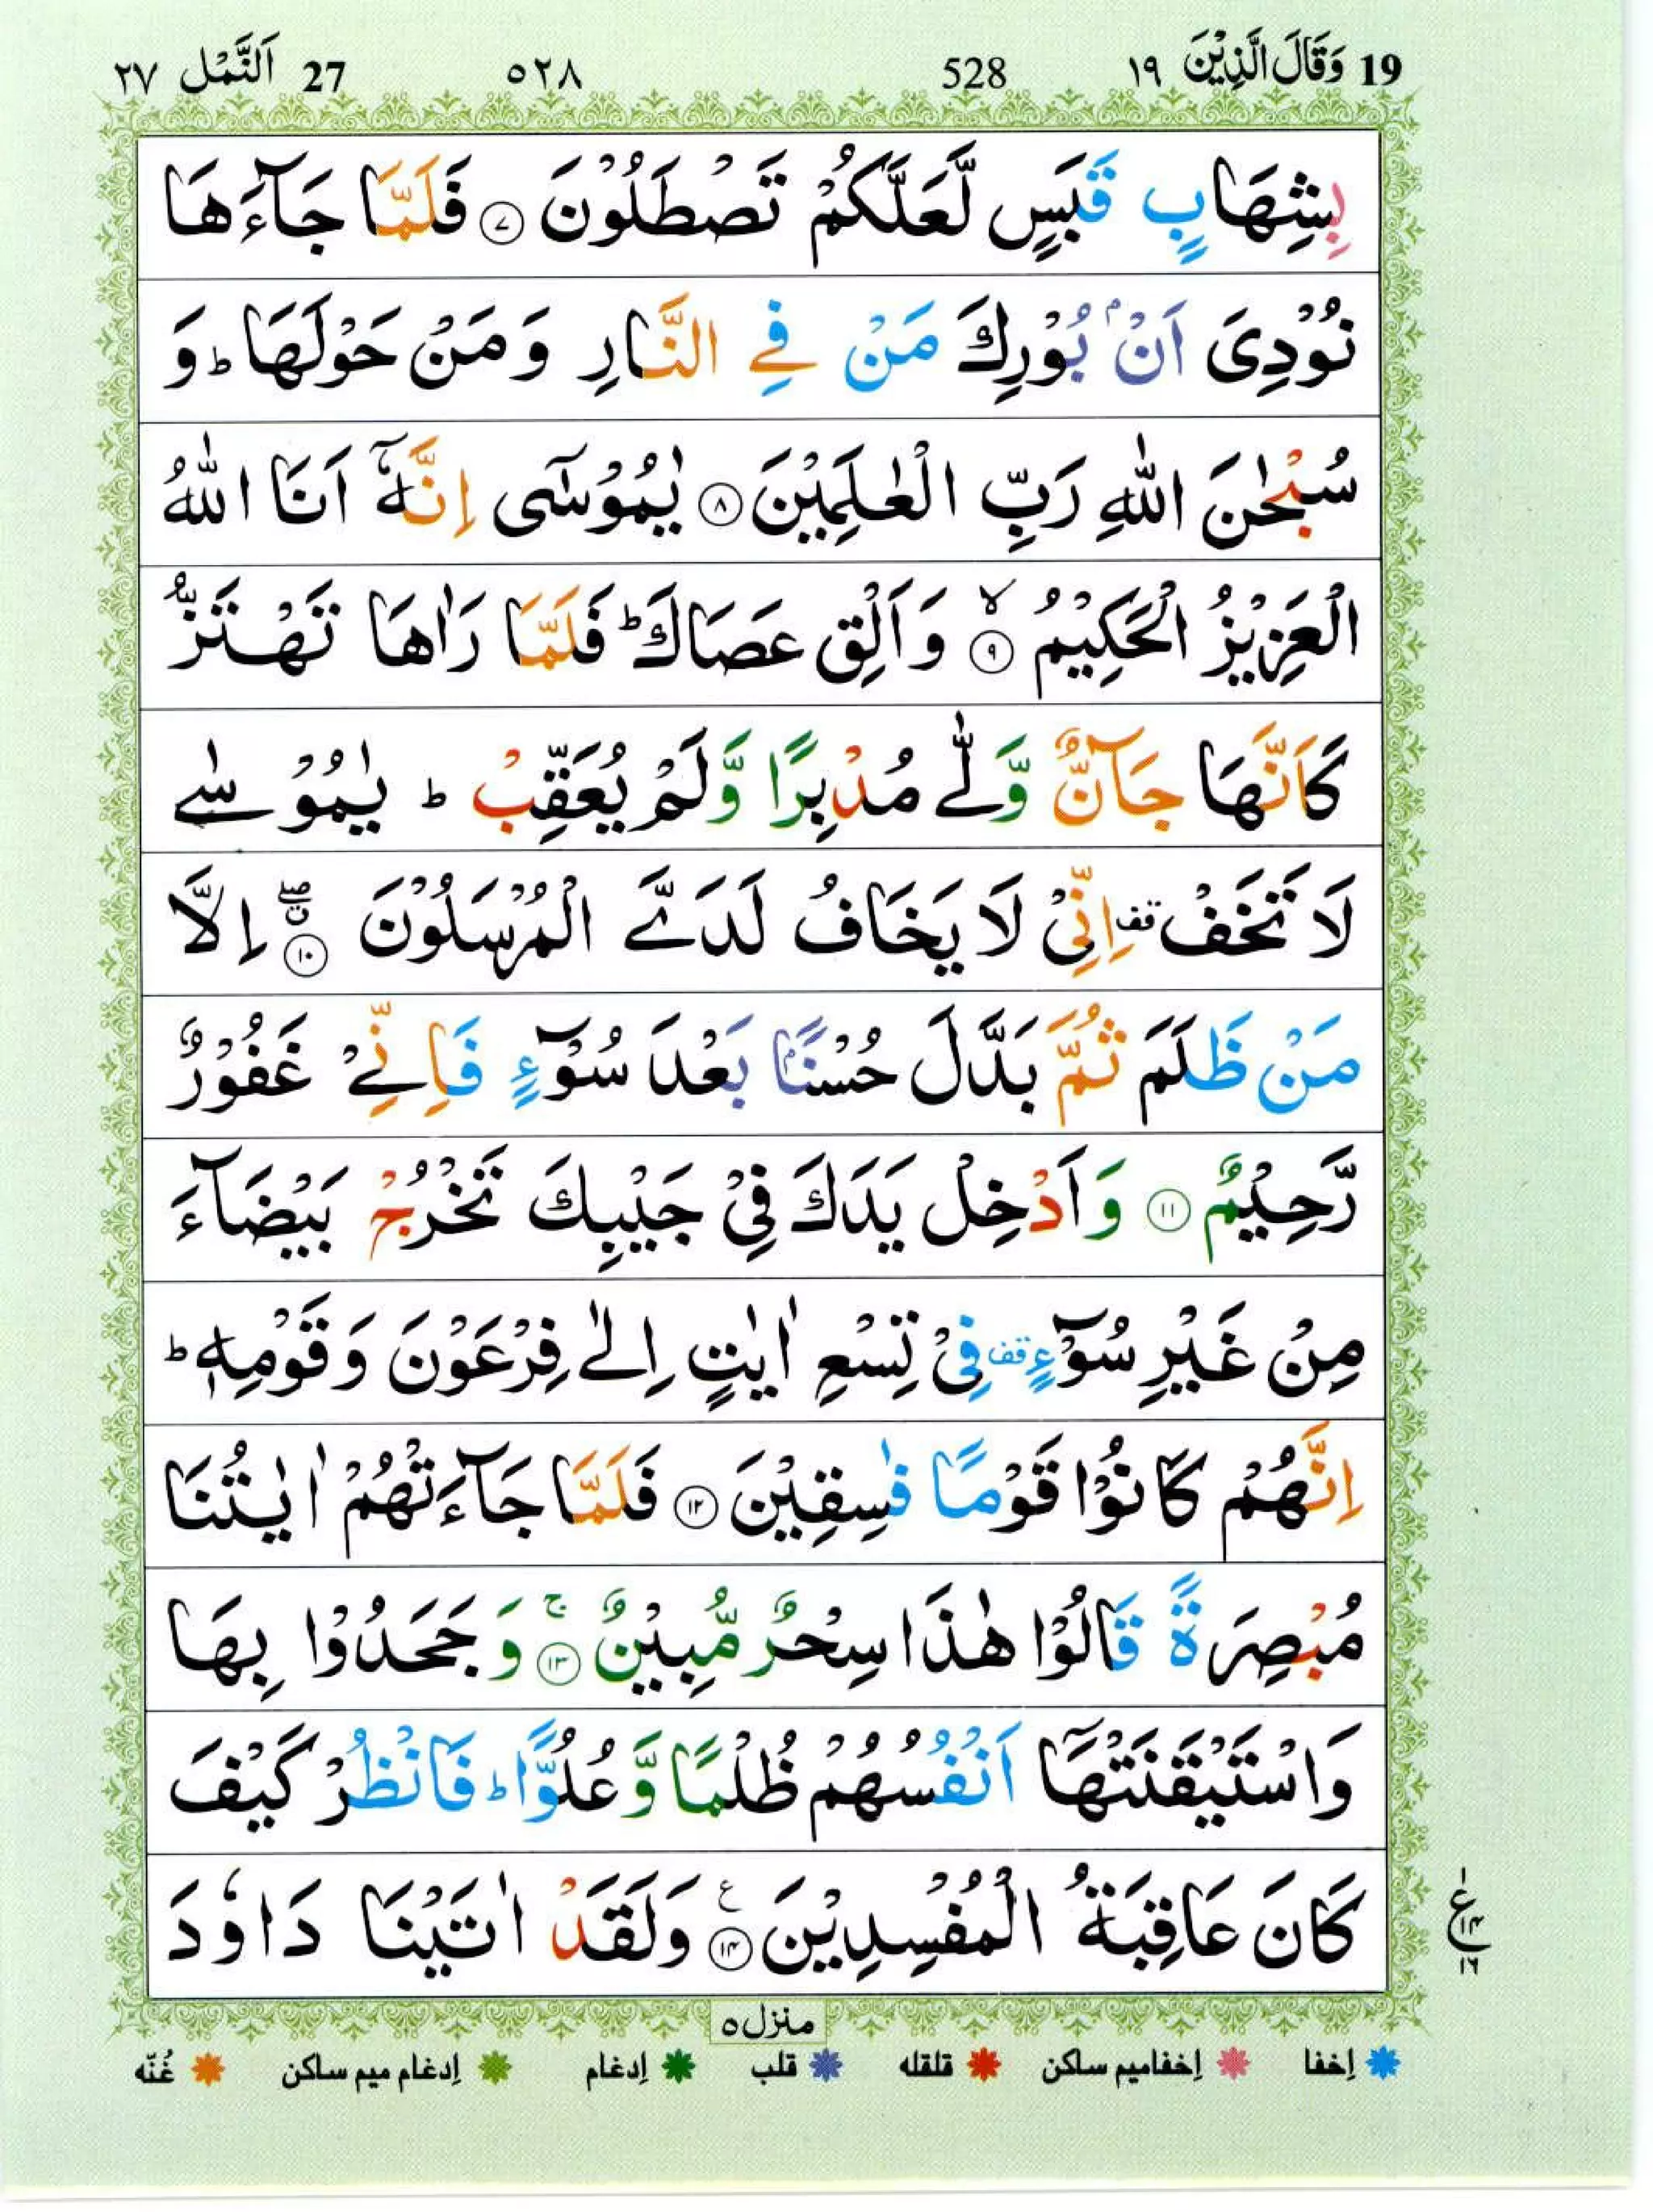 19 وَقَالَ الَّذِيْنَ ١٩ 528 ٥٢٨ 27 اَلنَّمْل ٢٧
بِشِهَابٍ قَبَسٍ لَّعَلَّكُمْ تَصْطَلُوْنَ ﴿٧﴾ فَلَمَّا جَآءَهَا
نُوْدِىَ اَنْۢ بُوْرِكَ مَنْ فِى النَّارِ وَمَنْ حَوْلَهَا ؕ وَ
سُبْحٰنَ اللّٰهِ رَبِّ الْعٰلَمِيْنَ ﴿٨﴾ يٰمُوْسٰٓى اِنَّهٗۤ اَنَا اللّٰهُ
الْعَزِيْزُ الْحَكِيْمُ ۙ﴿٩﴾ وَاَلْقِ عَصَاكَ ؕ فَلَمَّا رَاٰهَا تَهْتَزُّ
كَاَنَّهَا جَآنٌّ وَّلّٰى مُدْبِرًا وَّلَمْ يُعَقِّبْ ؕ يٰمُوْسٰى
لَا تَخَفْ قف اِنِّىْ لَا يَخَافُ لَدَىَّ الْمُرْسَلُوْنَ ۖ﴿١٠﴾ اِلَّا
مَنْ ظَلَمَ ثُمَّ بَدَّلَ حُسْنًۢا بَعْدَ سُوْٓءٍ فَاِنِّىْ غَفُوْرٌ
رَّحِيْمٌ ﴿١١﴾ وَاَدْخِلْ يَدَكَ فِىْ جَيْبِكَ تَخْرُجْ بَيْضَآءَ
مِنْ غَيْرِ سُوْٓءٍ قف فِىْ تِسْعِ اٰيٰتٍ اِلٰى فِرْعَوْنَ وَقَوْمِهٖ ؕ
اِنَّهُمْ كَانُوْا قَوْمًا فٰسِقِيْنَ ﴿١٢﴾ فَلَمَّا جَآءَتْهُمْ اٰيٰتُنَا
مُبْصِرَةً قَالُوْا هٰذَا سِحْرٌ مُّبِيْنٌ ۚ﴿١٣﴾ وَجَحَدُوْا بِهَا
وَاسْتَيْقَنَتْهَاۤ اَنْفُسُهُمْ ظُلْمًا وَّعُلُوًّا ؕ فَانْظُرْ كَيْفَ
كَانَ عَاقِبَةُ الْمُفْسِدِيْنَ ﴿١٤﴾ ع وَلَقَدْ اٰتَيْنَا دَاوٗدَ
١ ع ١٤ ١٦
منزل ٥
اِخفا اِخفامیم ساکن قلقله قلب اِدغام اِدغام میم ساکن غُنّه